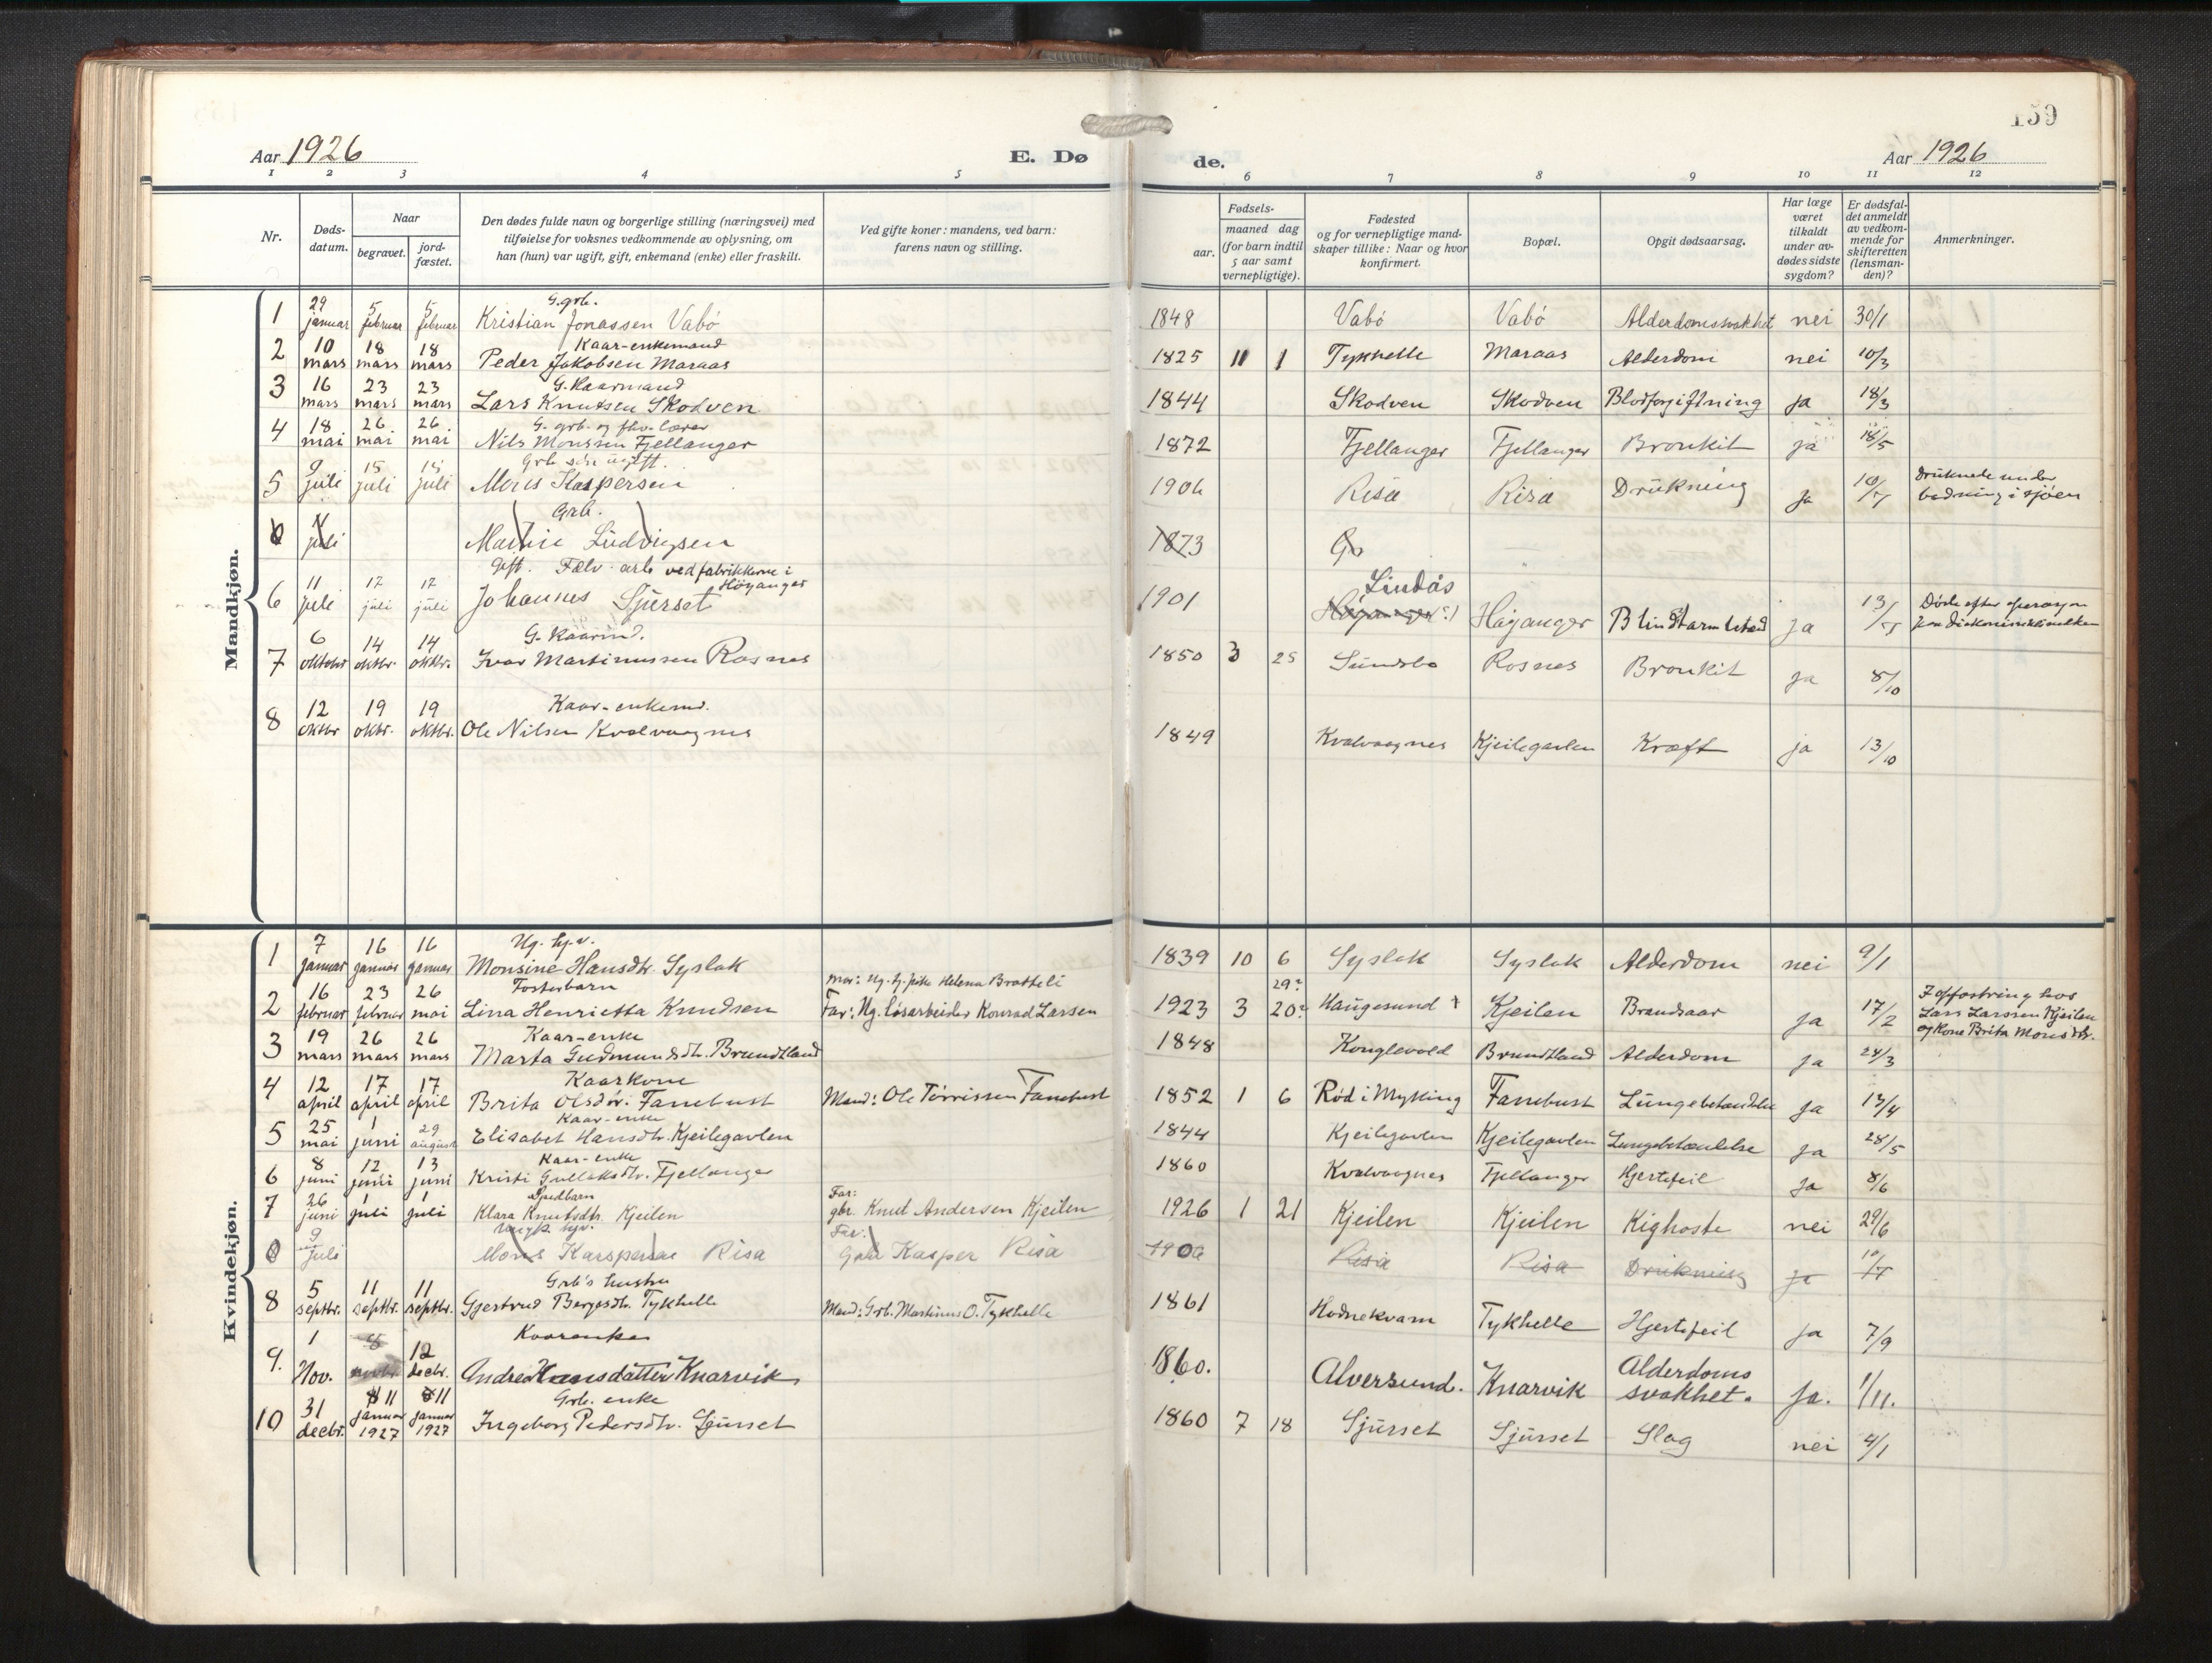 159
Aar 1926
E. Dø
de.
Aar 1926
1 2 3 4 5 6 7 8 9 10 11 12
Nr.
Døds-
datum.
Naar
begravet.
jord-
fæstet.
Den dødes fulde navn og borgerlige stilling (næringsvei) med
tilføielse for voksnes vedkommende av oplysning, om
han (hun) var ugift, gift, enkemand (enke) eller fraskilt.
Ved gifte koner: mandens, ved barn:
farens navn og stilling.
Fødsels-
aar.
maaned dag
(for barn indtil
5 aar samt
vernepligtige).
Fødested
og for vernepligtige mand-
skaper tillike: Naar og hvor
konfirmert.
Bopæl.
Opgit dødsaarsag.
Har læge
været
tilkaldt
under av-
dødes sidste
sygdom?
Er dødsfal-
det anmeldt
av vedkom-
mende for
skifteretten
(lensman-
den)?
Anmerkninger.
Mandkjøn.
29 5 5 G. grb.
1 januar februar februar Kristian Jonassen Vabö 1848 Vabö Vabö Alderdomssvakhet nei 30/1
10 18 18 Kaar-enkemand
2 mars mars mars Peder Jakobsen Maraas 1825 11 1 Tykhelle Maraas Alderdom nei 10/3
16 23 23 G. Kaarmand
3 mars mars mars Lars Knutsen Skodven 1844 Skodven Skodven Blodforgiftning ja 18/3
18 26 26 G. grb. og fhv. lærer
4 mai mai mai Nils Monssen Fjellanger 1872 Fjellanger Fjellanger Bronkit ja 18/5
9 15 15 Grb. søn ugift.
5 juli juli juli Mons Kaspersen 1906 Risa Risa Drukning ja 10/7 druknede under
badning i sjöen
Grb.
juli Martin Ludvigsen 1873
Gift. Fælv. arb ved fabrikkerne i
Höyanger
11 17 17
6 juli juli juli Johannes Sjurset 1901 Lindås Höyanger Blindtarmbetend ja 13/7 Döde efter operasjon
6 14 14 G. Kaarmd.
7 oktober oktbr. oktbr. Ivar Martinussen Rosnes 1850 3 25 Sundsbø Rosnes Bronkit ja 8/10
12 19 19 Kaar-enkemd.
8 oktbr oktbr. oktbr. Ole Nilsen Kvalvaagnes 1849 Kvalvaagnes Kjeilegavlen Kræft ja 13/10
Kvindekjøn.
7 16 16 Ug. hj.v.
1 januar januar januar Monsine Hansdtr. Syslak 1839 10 6 Syslak Syslak Alderdom nei 9/1
16 23 26 Fosterbarn Mor: Ug. tj. pike Helena Bratteli 29?
2 februar februar mai Lina Henrietta Knudsen Far: Ug. løsarbeider Konrad Larsen 1923 3 20? Haugesund Kjeilen Brandsaar ja 17/2 I opfostring hos
Lars Larssen Kjeilen
og kone Brita Monsdtr.
19 26 26 Kaar-enke
3 mars mars mars Marta Gudmundsdtr. Brundtland 1848 Konglevold Brundtland Alderdom ja 24/3
12 17 17 Kaarkone
4 april april april Brita Olsdtr. Fanebust Mand: Ole Tørrissen Fanebust 1852 1 6 Rød i Myking Fanebust Lungebetændelse ja 13/4
25 1 29 Kaar-enke
5 mai juni august Elisabet Hansdtr. Kjeilegavlen 1844 Kjeilegavlen Kjeilegavlen Lungebetændelse ja 28/5
8 12 13 Kaar-enke
6 juni juni juni Kristi Gullaksdtr. Fjellanger 1860 Kvalvaagnes Fjellanger Hjertefeil ja 8/6
26 1 1 Spedbarn Far:
7 juni juli juli Klara Knutsdtr. Kjeilen gbr. Knut Andersen Kjeilen 1926 1 21 Kjeilen Kjeilen Kighoste nei 29/6
9 Far:
juli Mons Karspersen Risa Kasper Risa 1906 Risa Risa Drukning ja
5 11 11 Grb's hustru
8 septbr. septbr. septbr. Gjertrud Bergesdtr. Tykhelle Mand: Grb. Martinus O. Tykhelle 1861 Hodnekvam Tykhelle Hjertefeil ja 7/9
1 8 12 Kaarenke
9. Nov. decbr. Andrea Hansdatter Knarvik 1860. Alversund. Knarvik Alderdoms
svakhet. Ja. 1/11.
31 11 11 Grb. enke
10 decbr. januar januar Ingeborg Pedersdtr. Sjurset 1860 7 18 Sjurset Sjurset Slag nei 4/1
1927 1927